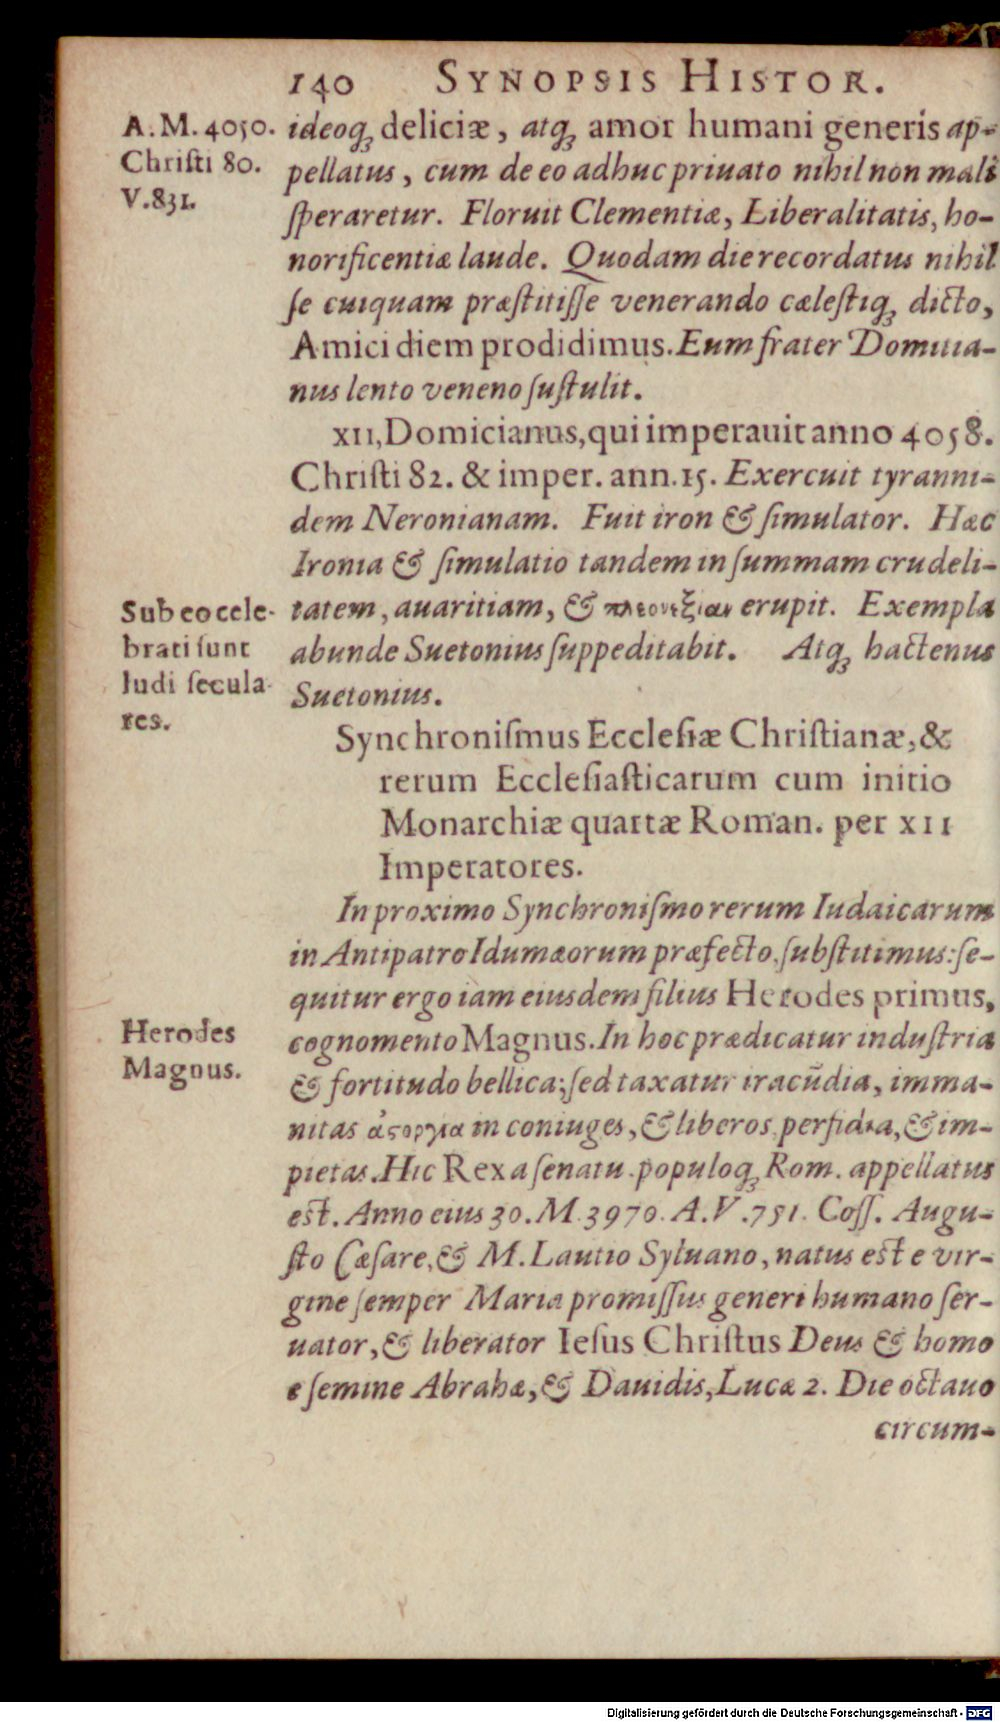 140 SYNOPSIS HISTOR.
A. M. 4050.
Chriſti 80.
V. 831.
ideoq́ꝫ deliciæ, atq́ꝫ amor humani generis ap-
pellatus, cum de eo adhuc priuato nihil non mali
ſperaretur. Floruit Clementiæ, Liberalitatis, ho-
norificentiæ laude. Quodam die recordatus nihil
ſe cuiquam præſtitiſſe venerando cæleſtiq́ꝫ dicto,
Amici diem prodidimus. Eum frater Domitia-
nus lento veneno ſuſtulit.
XII, Domicianus, qui imperauit anno 4058.
Chriſti 82. & imper. ann. 15. Exercuit tyranni-
dem Neronianam. Fuit iron & ſimulator. Hæc
Ironia & ſimulatio tandem in ſummam crudeli-
tatem, auaritiam, & πλεονεξίαν erupit. Exempla
abunde Suetonius ſuppeditabit. Atq́ꝫ hactenus
Suetonius.
Sub eo cele-
brati ſunt
ludi ſecula-
res.
Synchroniſmus Eccleſiæ Chriſtianæ, &
rerum Eccleſiaſticarum cum initio
Monarchiæ quartæ Roman. per XII
Imperatores.
In proximo Synchroniſmo rerum Iudaicarum
in Antipatro Idumæorum præfecto, ſubſtitimus: ſe-
quitur ergo iam eiusdem filius Herodes primus,
cognomento Magnus. In hoc prædicatur induſtria
& fortitudo bellica; ſed taxatur iracũdia, imma-
nitas ἀϛοργία in coniuges, & liberos, perfidia, & im-
pietas. Hic Rex a ſenatu populoq́ꝫ Rom. appellatus
eſt. Anno eius 30. M. 3970. A. V. 751. Coſſ. Augu-
ſto Cæſare, & M. Lautio Syluano, natus eſt e vir-
gine ſemper Maria promiſſus generi humano ſer-
uator, & liberator Ieſus Chriſtus Deus & homo
e ſemine Abrahæ, & Dauidis, Lucæ 2. Die octauo
circum-
Herodes
Magnus.
Digitalisierung gefördert durch die Deutsche Forschungsgemeinschaft - DFG